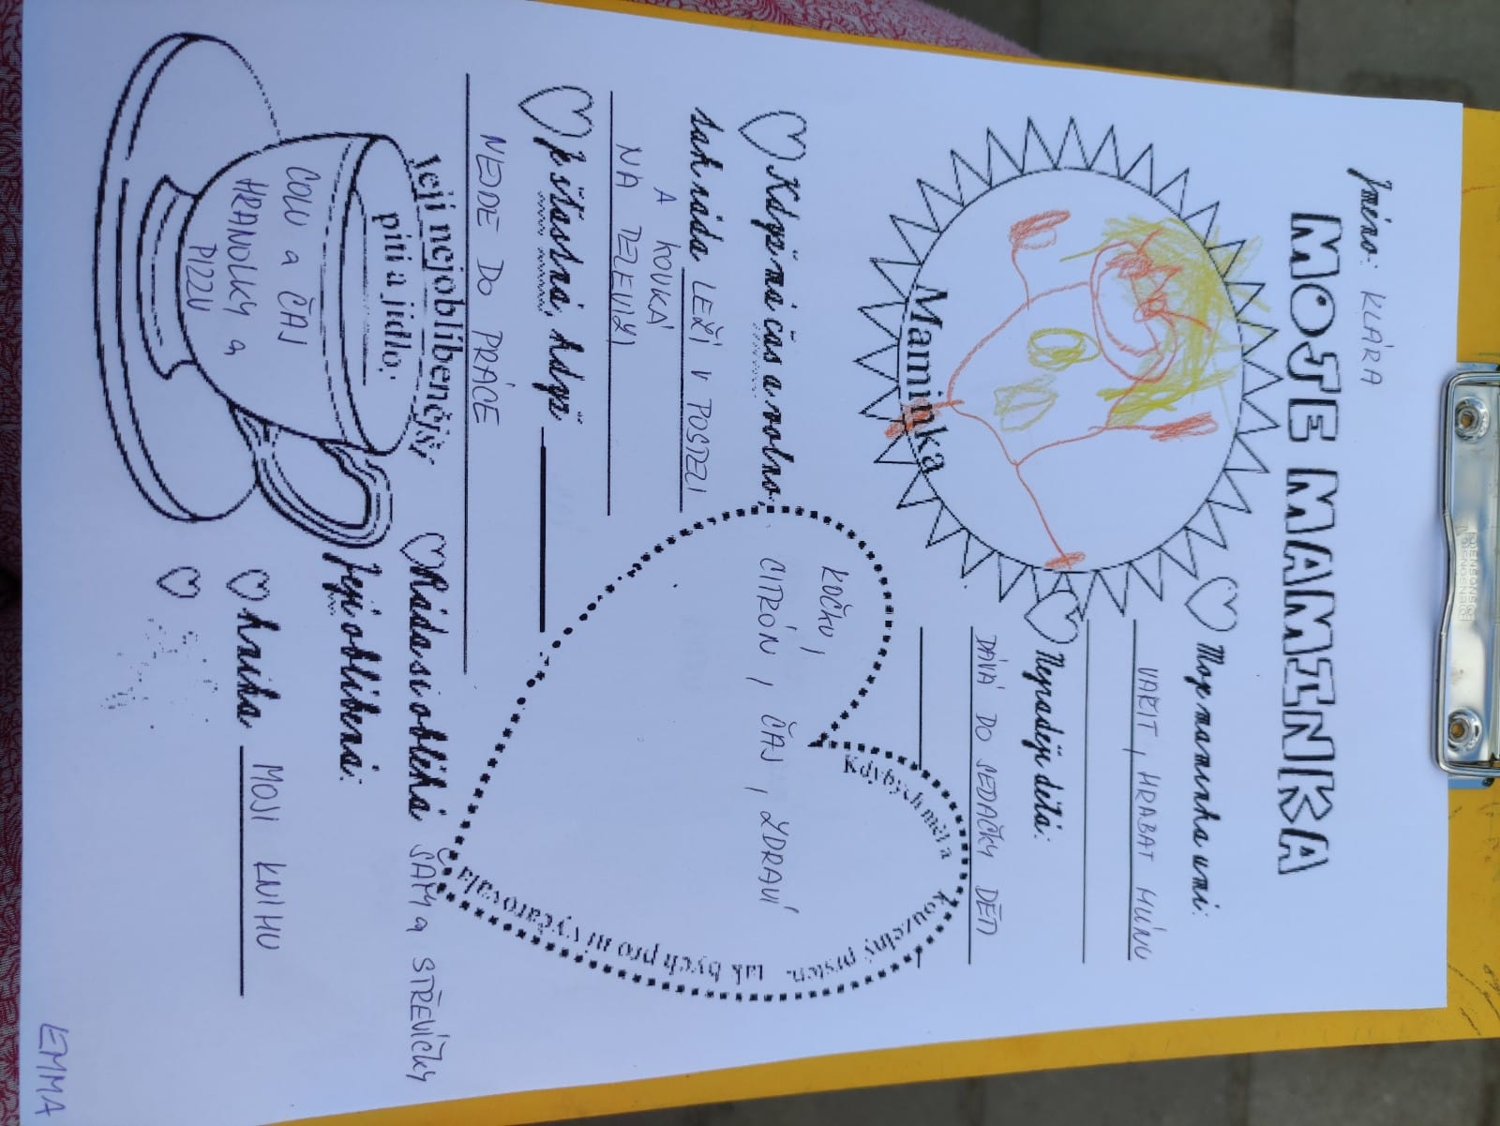 Jméno: KLÁRA
MOJE MAMINKA
Maminka
Moje maminka umí:
VAŘIT, HRABAT HLÍNU
Nejraději dělá:
DÁVÁ DO SEDAČKY DĚTI
Když má čas a volno,
tak ráda LEŽÍ V POSTELI
A KOUKÁ
NA TELEVIZI
Je šťastná, když
NEJDE DO PRÁCE
Kdybych měl a kouzelný prsten, tak bych pro ni vyčarovala
KOČKU,
CITRÓN, ČAJ, ZDRAVÍ
Její nejoblíbenější
pití a jídlo:
COLU a ČAJ
HRANOLKY a
PIZZU
Ráda si obléká ŠATY a STŘEVÍČKY
Její oblíbená:
kniha MOJI KNIHU
EMMA